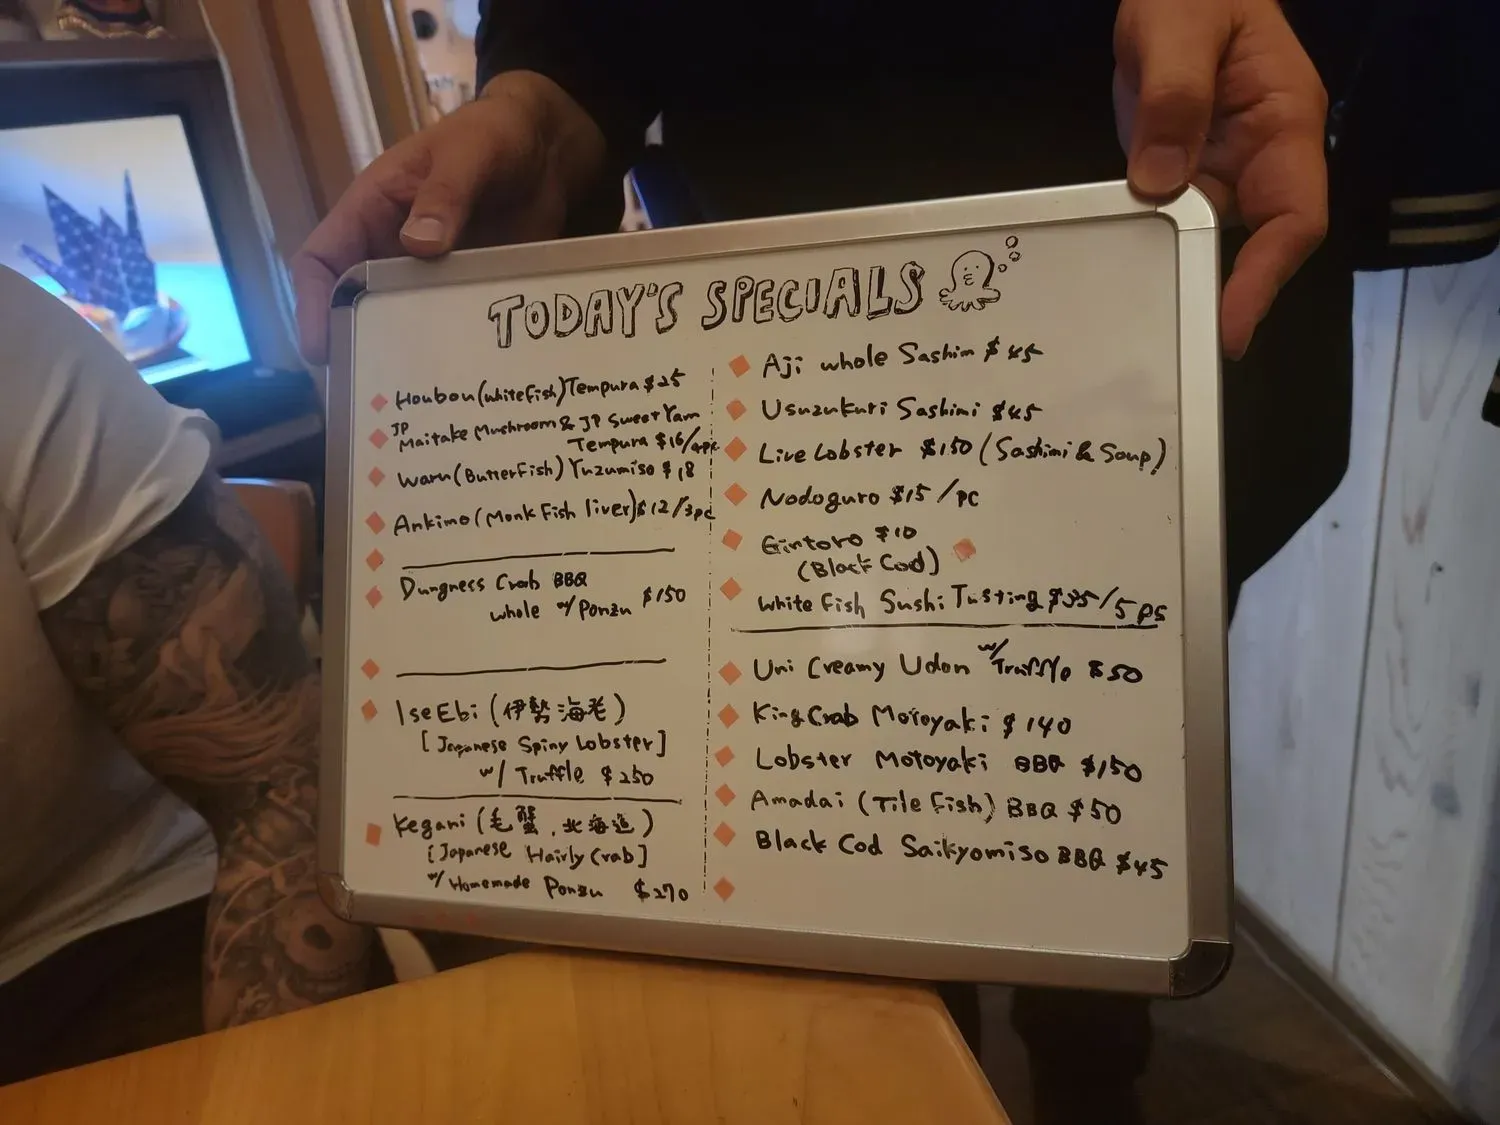 TODAY'S SPECIALS
Houbou (white fish) Tempura $25
JP
Maitake Mushroom & JP Sweet Yam
Tempura $16/4pc
Waru (Butterfish) Yuzumiso $18
Ankimo (Monk Fish liver) $12/3pc
Dungness Crab BBQ
whole w/ Ponzu $150
Ise Ebi (伊勢海老)
[Japanese Spiny Lobster]
w/ Truffle $250
Kegani (毛蟹, 北海道)
[Japanese Hairly Crab]
w/ Homemade Ponzu $270
Aji whole Sashimi $45
Usuzukuri Sashimi $45
Live Lobster $150 (Sashimi & Soup)
Nodoguro $15/pc
Gintoro $10
(Black Cod)
White Fish Sushi Tasting $35/5ps
Uni Creamy Udon w/ Truffle $50
King Crab Motoyaki $140
Lobster Motoyaki BBQ $150
Amadai (Tile Fish) BBQ $50
Black Cod Saikyomiso BBQ $45